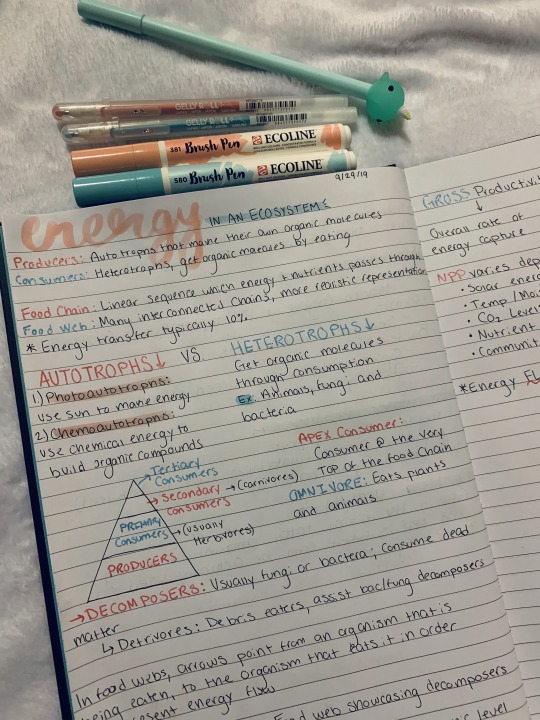 GELLY
GELLY
381 Brush Pen ECOLINE
580 Brush Pen ECOLINE
9/29/19
energy IN AN ECOSYSTEM:
Producers: Autotrophs that make their own organic molecules
Consumers: Heterotrophs, get organic molecules by eating
Food Chain: Linear sequence which energy + nutrients passes through
Food Web: Many interconnected chains, more realistic representation
* Energy transfer typically 10%.
AUTOTROPHS↓ VS HETEROTROPHS↓
1) Photoautotrophs:
use sun to make energy
2) Chemoautotrophs:
use chemical energy to
build organic compounds
Get organic molecules
through consumption
Ex. Animals, fungi and
bacteria
APEX Consumer:
Consumer @ the very
TOP of the food chain
OMNIVORE: Eats plants
and animals
Tertiary
Consumers
Secondary → (carnivores)
Consumers
PRIMARY
Consumers → (usually
Herbivores)
PRODUCERS
→ DECOMPOSERS: Usually fungi or bacteria; consume dead
matter
↳ Detrivores: Debris eaters, assist bac/fung decomposers
In food webs, arrows point from an organism that is
being eaten, to the organism that eats it in order
energy flow
Food web showcasing decomposers
level
GROSS Productivi
↓
Overall rate of
energy capture
NPP varies dep
• Solar energ
• Temp/Moi
• CO2 Level
• Nutrient
• Communit
*Energy FL